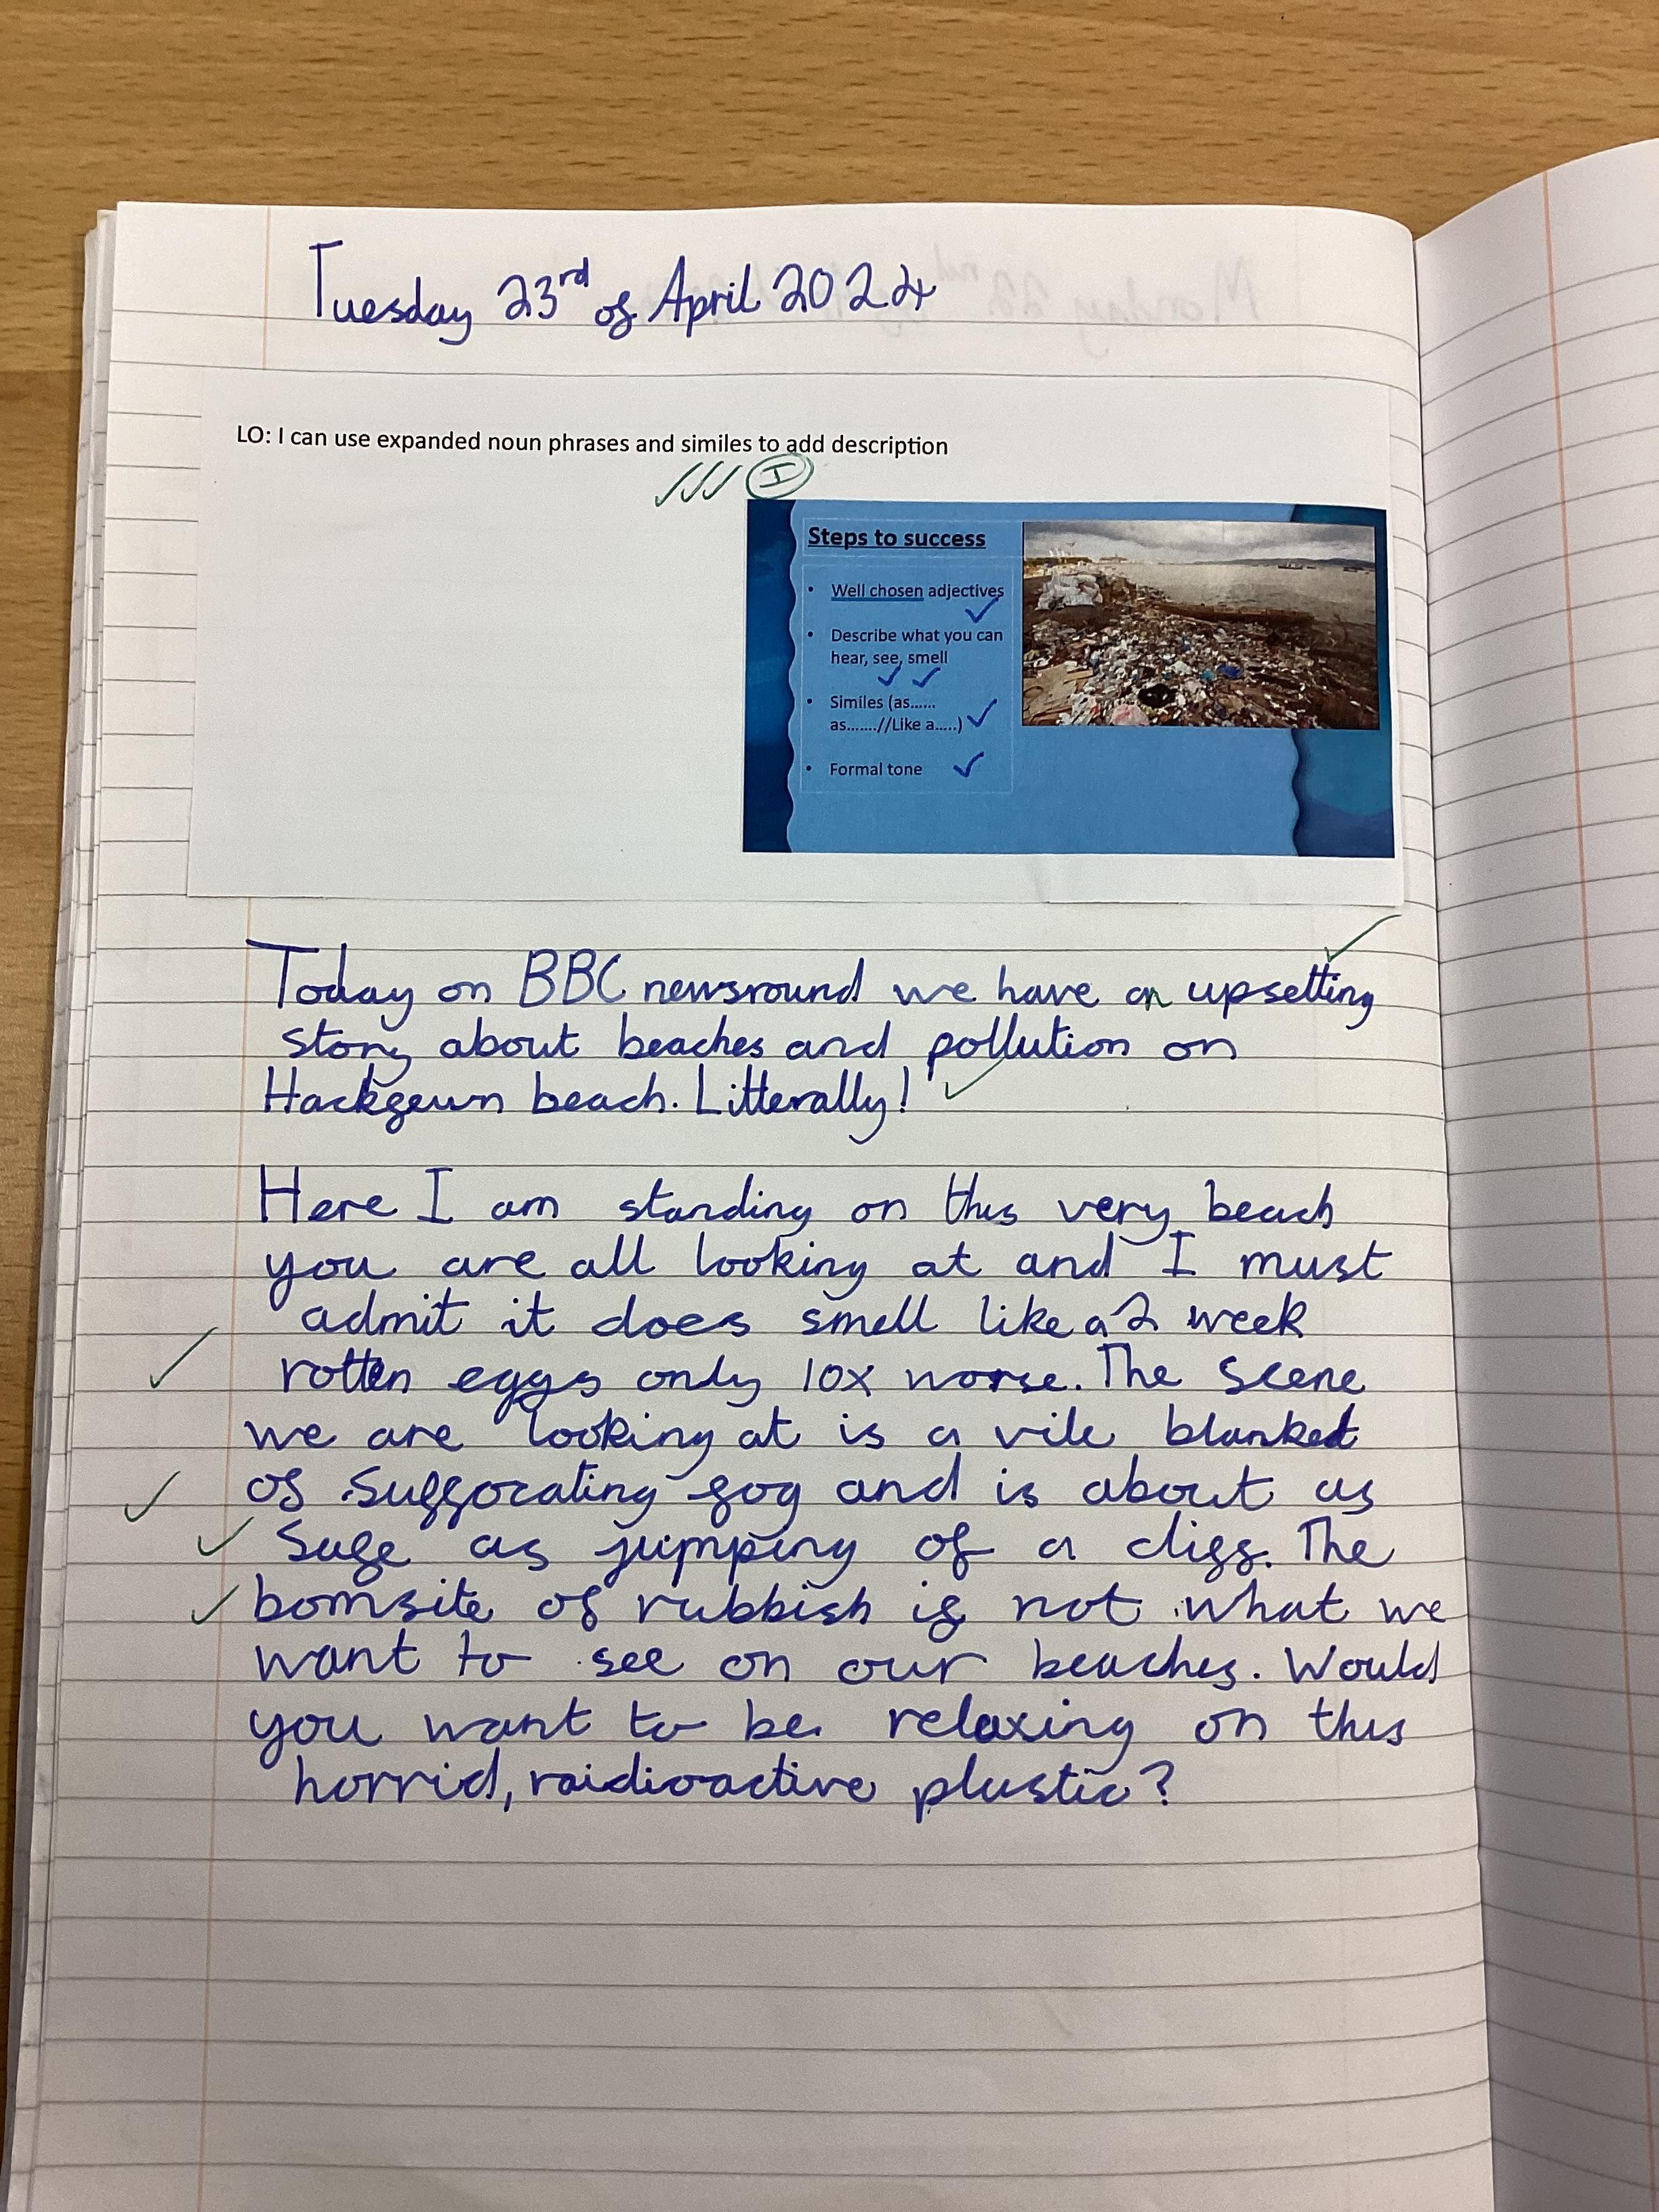 Tuesday 23rd of April 2024
LO: I can use expanded noun phrases and similes to add description
I
Steps to success
• Well chosen adjectives
• Describe what you can
hear, see, smell
• Similes (as......
as.......//Like a.....)
• Formal tone
Today on BBC newsround we have an upsetting
story about beaches and pollution on
Hackgewn beach. Litterally!
Here I am standing on this very beach
you are all looking at and I must
admit it does smell like a 2 week
rotten eggs only 10x worse. The scene
we are looking at is a vile blanket
of suffocating fog and is about as
safe as jumpping of a cliff. The
bomsite of rubbish is not what we
want to see on our beaches. Would
you want to be relaxing on this
horrid, raidioactive plastic?